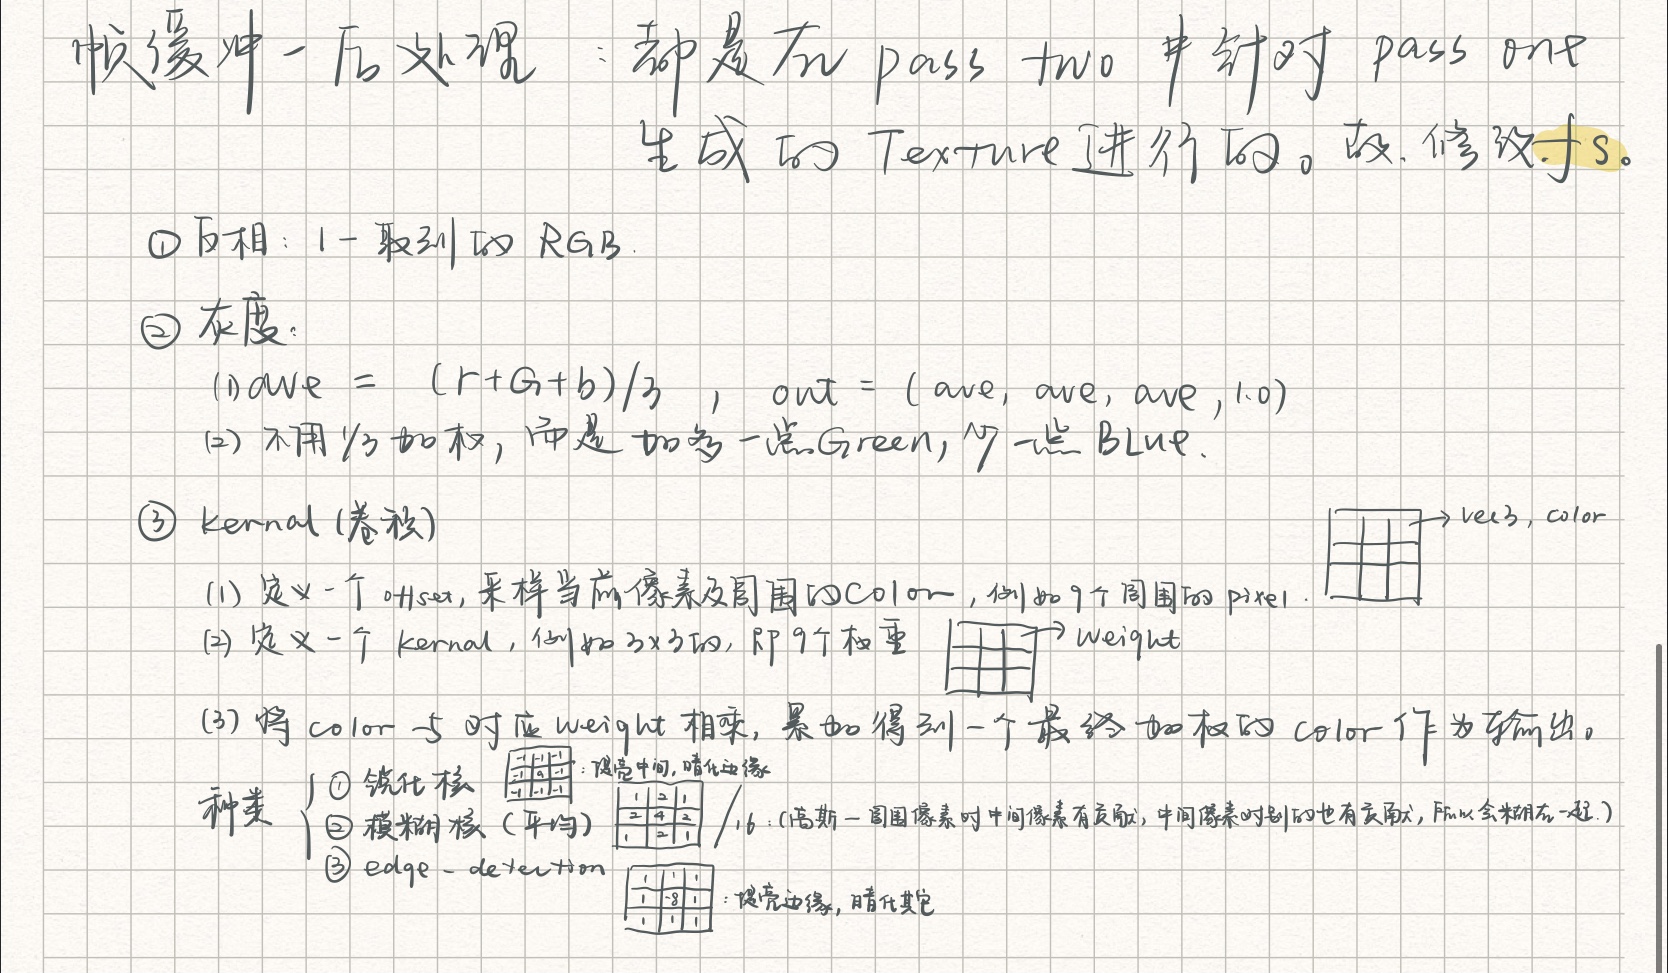 帧缓冲-后处理：都是在 pass two 中针对 pass one
生成的 Texture 进行的。故.修改.fs。
① 反相：1-取到的 RGB.
② 灰度：
(1) ave = (r+G+b)/3 , out = (ave, ave, ave, 1.0)
(2) 不用 1/3 加权，而是加多一点 Green，少一点 BLue.
③ kernal (卷积)
→ vec3, color
(1) 定义一个 offset, 采样当前像素及周围的 Color，例如9个周围的 pixel.
(2) 定义一个 kernal，例如 3x3的，即9个权重
→ Weight
(3) 将 color 与对应 weight 相乘，累加得到一个最终加权的 color 作为输出。
种类
① 锐化核
-1 -1 -1
-1 9 -1
-1 -1 -1
：提亮中间，暗化边缘
② 模糊核（平均）
1 2 1
2 4 2
1 2 1
/16：(高斯-周围像素对中间像素有贡献，中间像素对别的也有贡献，所以会糊在一起.)
③ edge-detection
1 1 1
1 -8 1
1 1 1
：提亮边缘，暗化其它